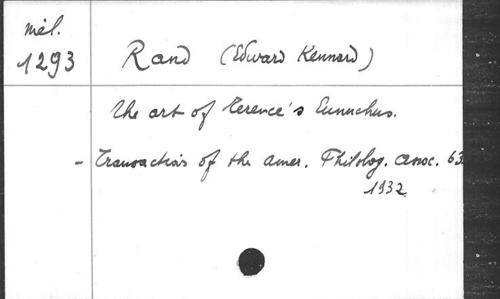 Mél.
1293
Rand (Edward Kennard)
The art of Terence's Eunuchus.
- Transactions of the Amer. Philolog. Assoc. 63
1932